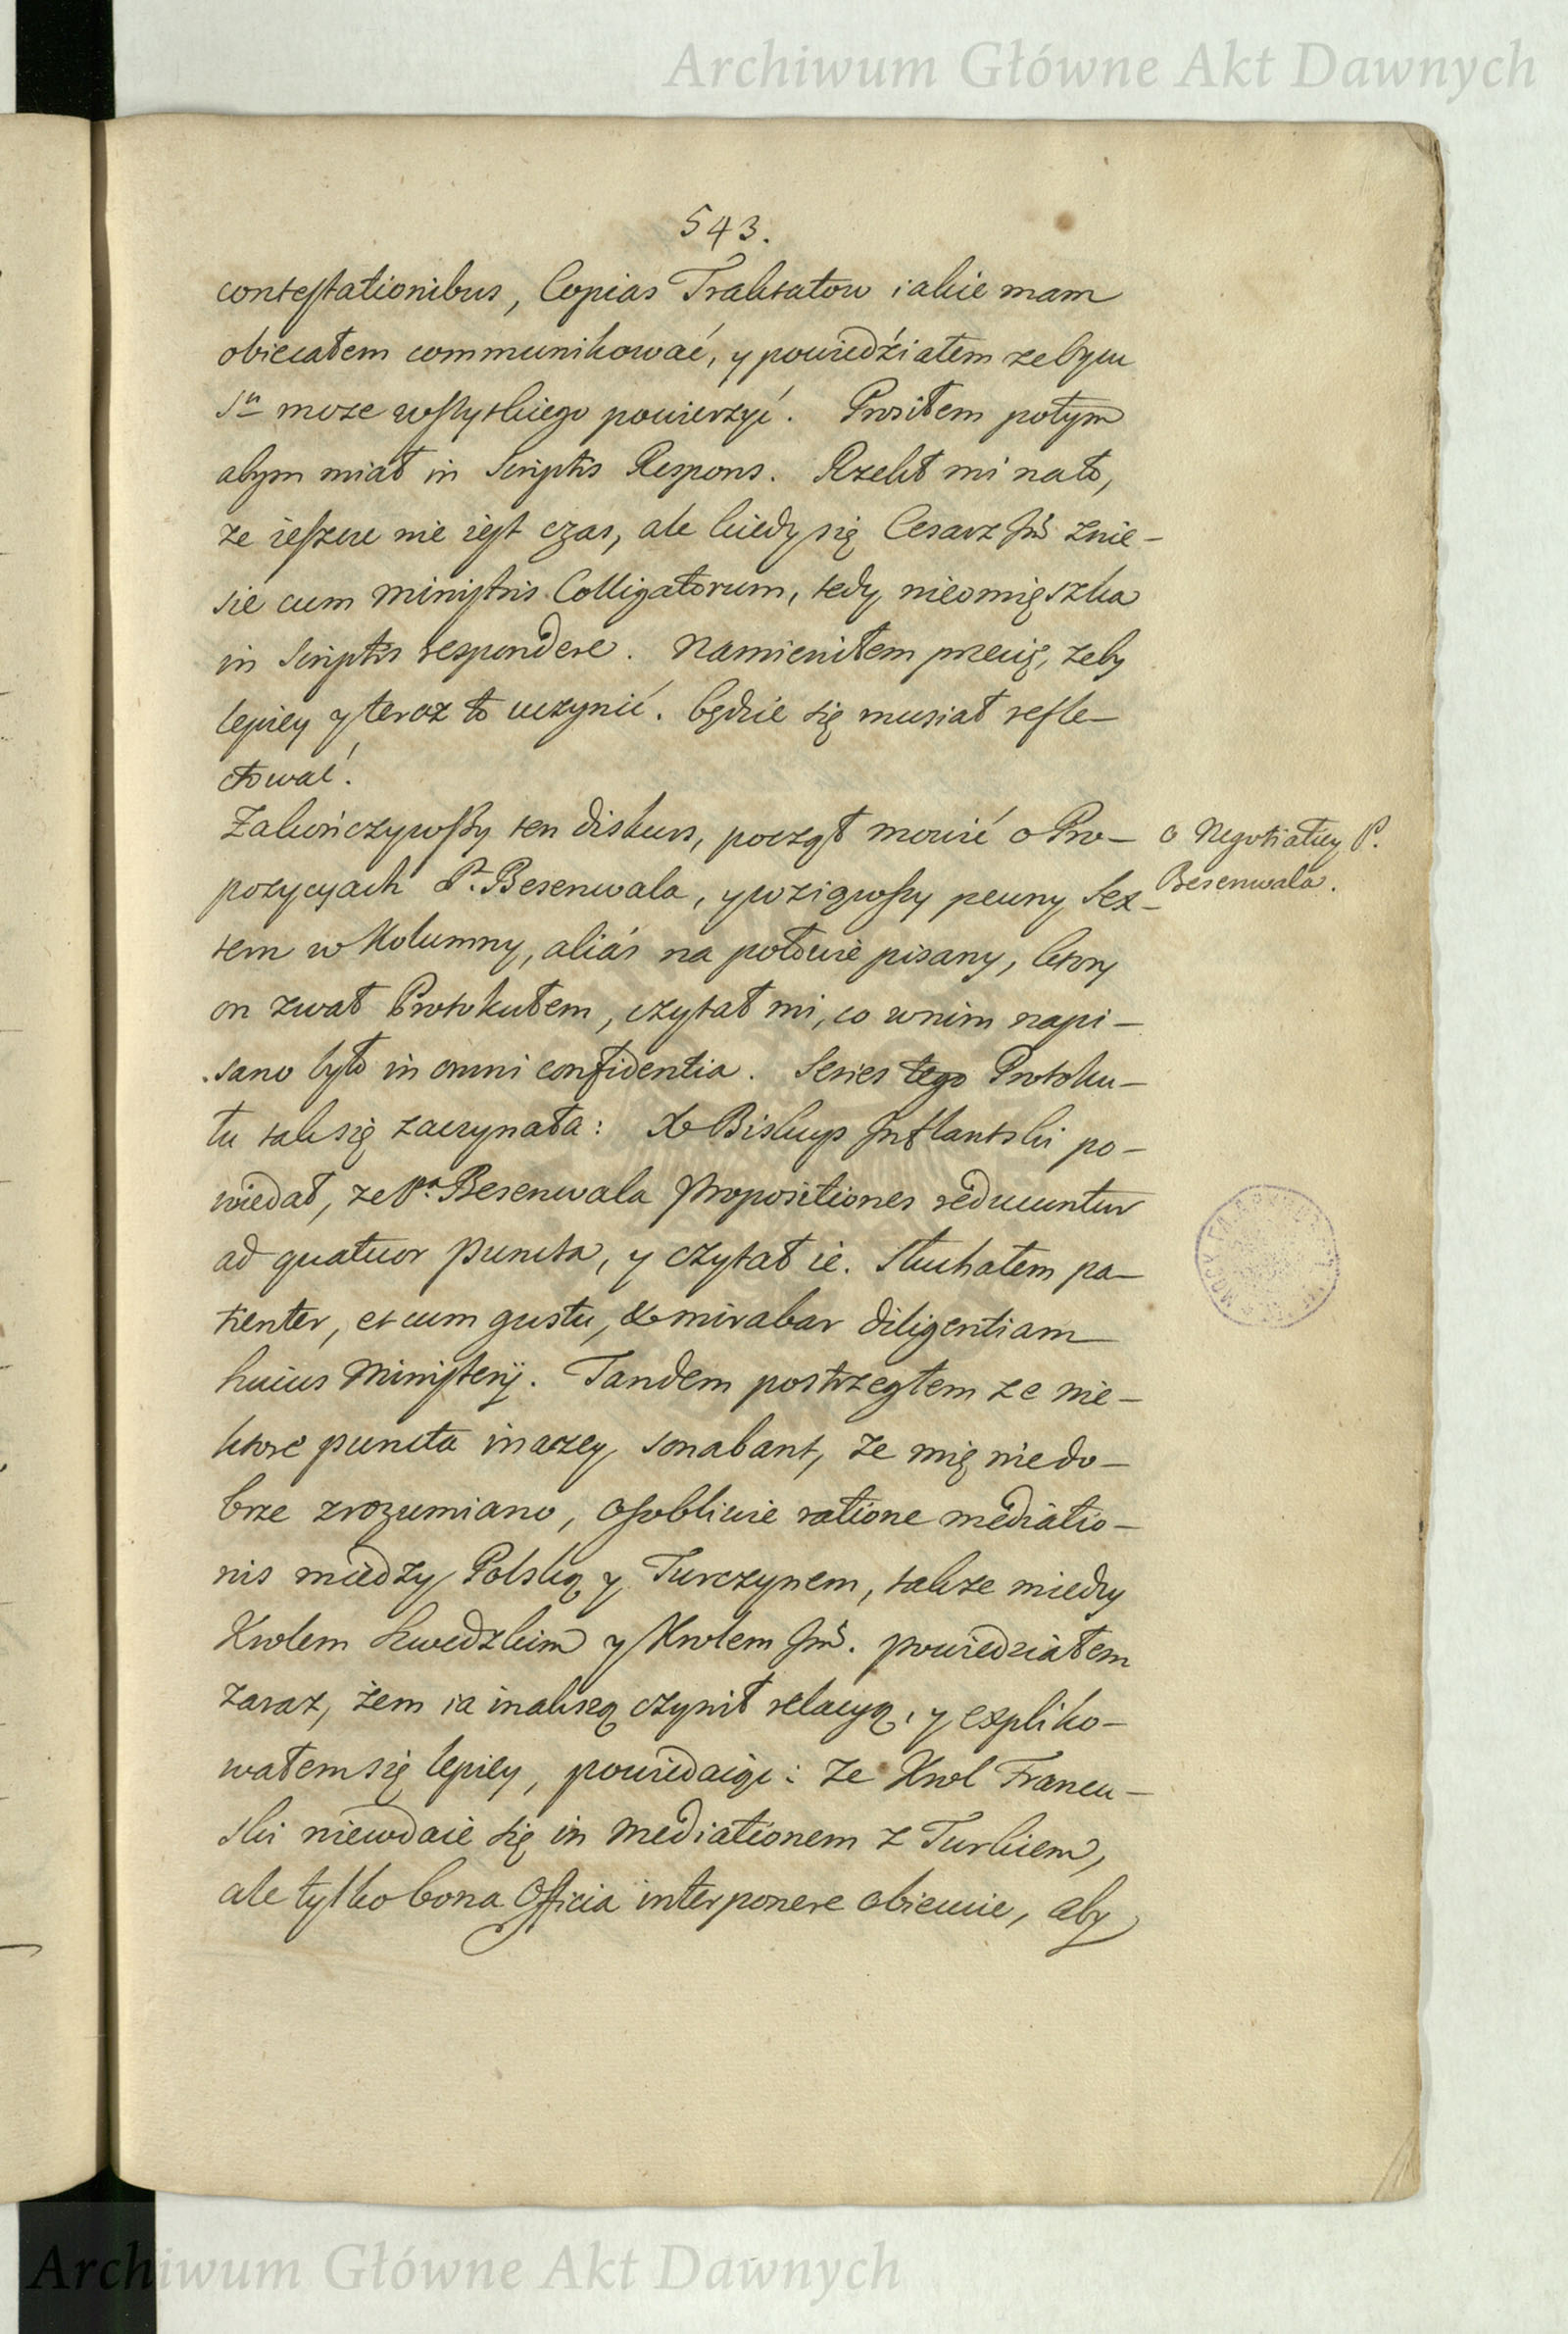 Archiwum Główne Akt Dawnych
543.
contestationibus, Copias Traktatow iakie mam
obiecałem communikować, y powiedźiałem ze
może wszytkiego powierzyć. Prosiłem potym
abym miał in Scriptis Respons. Rzekł mi nato,
ze ieszcze nie iest czas, ale kiedy się Cesarz Jmć znie-
sie cum Ministris Colligatorum, tedy nieomięszka
in Scriptis respondere. Namieniłem przecię, żeby
lepiey y teraz to uczynić. będzie się musiał refle-
ctować.
Zakończywszy ten diskurs, począł mowić o Pro-
pozycyach Pa Besenwala, y wziąwszy pewny Sex-
tern w Kolumny, aliás na połowie pisany, ktory
on zwał Protokułem, czytał mi, co wnim napi-
sano było in omni confidentia. Series tego Protoku-
łu tak się zaczynała: X Biskup Jnflantski po-
wiedał, ze Pa Besenwala Propositiones reducuntur
ad quatuor puncta, y czytał ie. Słuchałem pa-
tienter, et cum gustu, & mirabar diligentiam
huius Ministerij. Tandem postrzegłem ze nie-
ktore puncta inaczey sonabant, że mię niedo-
brze zrozumiano, osobliwie ratione mediatio-
nis miedzy Polską y Turczynem, takze miedzy
Krolem Szwedzkim y Krolem Jmć. powiedziałem
zaraz, żem ia inakszą czynił relacyą, y expliko-
wałem się lepiey, powiedaiąc: Ze Krol Francu-
ski niewdaie się in Mediationem z Turkiem,
ale tylko bona Officia interponere obiecuie, aby
O Negotiatiey P.
Besenwala.
Archiwum Główne Akt Dawnych